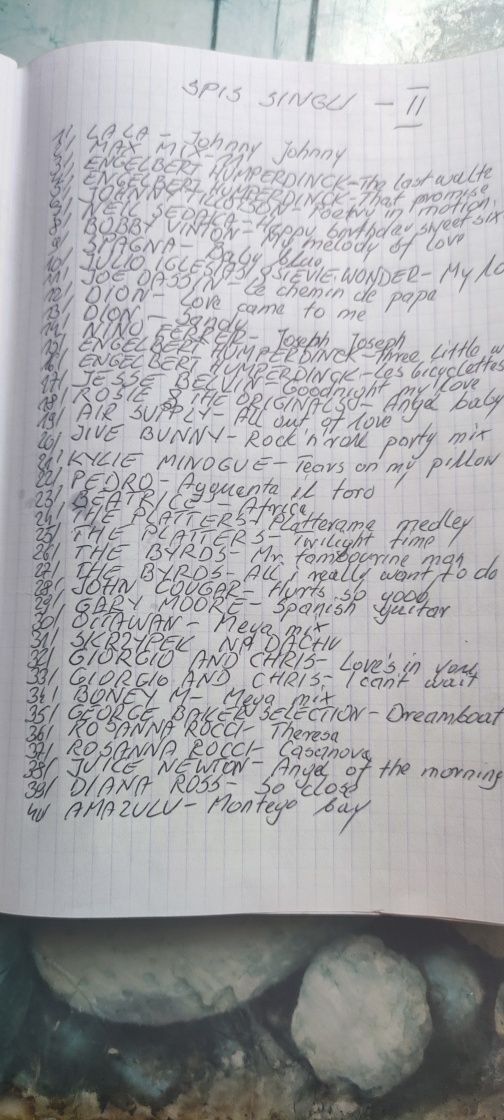 SPIS SINGLI - II
1/ LA LA - Johnny Johnny
2/ MAX MIX - 11
3/ ENGELBERT HUMPERDINCK - The last walte
4/ ENGELBERT HUMPERDINCK - That promise
5/ JOHNNY TILLOTSON - Poetry in motion
6/ NEIL SEDAKA - Happy birthday sweet six
8/ BOBBY VINTON - My melody of love
9/ SPAGNA - Baby blue
10/ JULIO IGLESIAS & STEVIE WONDER - My lo
11/ JOE DASSIN - Le chemin de papa
12/ DION - Love came to me
13/ DION - Sandy
14/ NINO FERRER - Joseph Joseph
15/ ENGELBERT HUMPERDINCK - Three little w
16/ ENGELBERT HUMPERDINCK - Les bicyclettes
17/ JESSE BELVIN - Goodnight my love
18/ ROSIE & THE ORIGINALS - Angel baby
19/ AIR SUPPLY - All out of love
20/ JIVE BUNNY - Rock'n'roll party mix
21/ KYLIE MINOGUE - Tears on my pillow
22/ PEDRO - Agguanta il toro
23/ BEATRICE - Africa
24/ THE PLATTERS - Platterama medley
25/ THE PLATTERS - Twilight time
26/ THE BYRDS - Mr. tambourine man
27/ THE BYRDS - All I really want to do
28/ JOHN COUGAR - Hurts so good
29/ GARY MOORE - Spanish guitar
30/ OTTAWAN - Mega mix
31/ SKRZYPEK NA DACHU
32/ GIORGIO AND CHRIS - Love's in you
33/ GIORGIO AND CHRIS - I can't wait
34/ BONEY M - Mega mix
35/ GEORGE BAKER SELECTION - Dreamboat
36/ ROSANNA ROCCI - Theresa
37/ ROSANNA ROCCI - Casanova
38/ JUICE NEWTON - Angel of the morning
39/ DIANA ROSS - So close
40/ AMAZULU - Montego bay